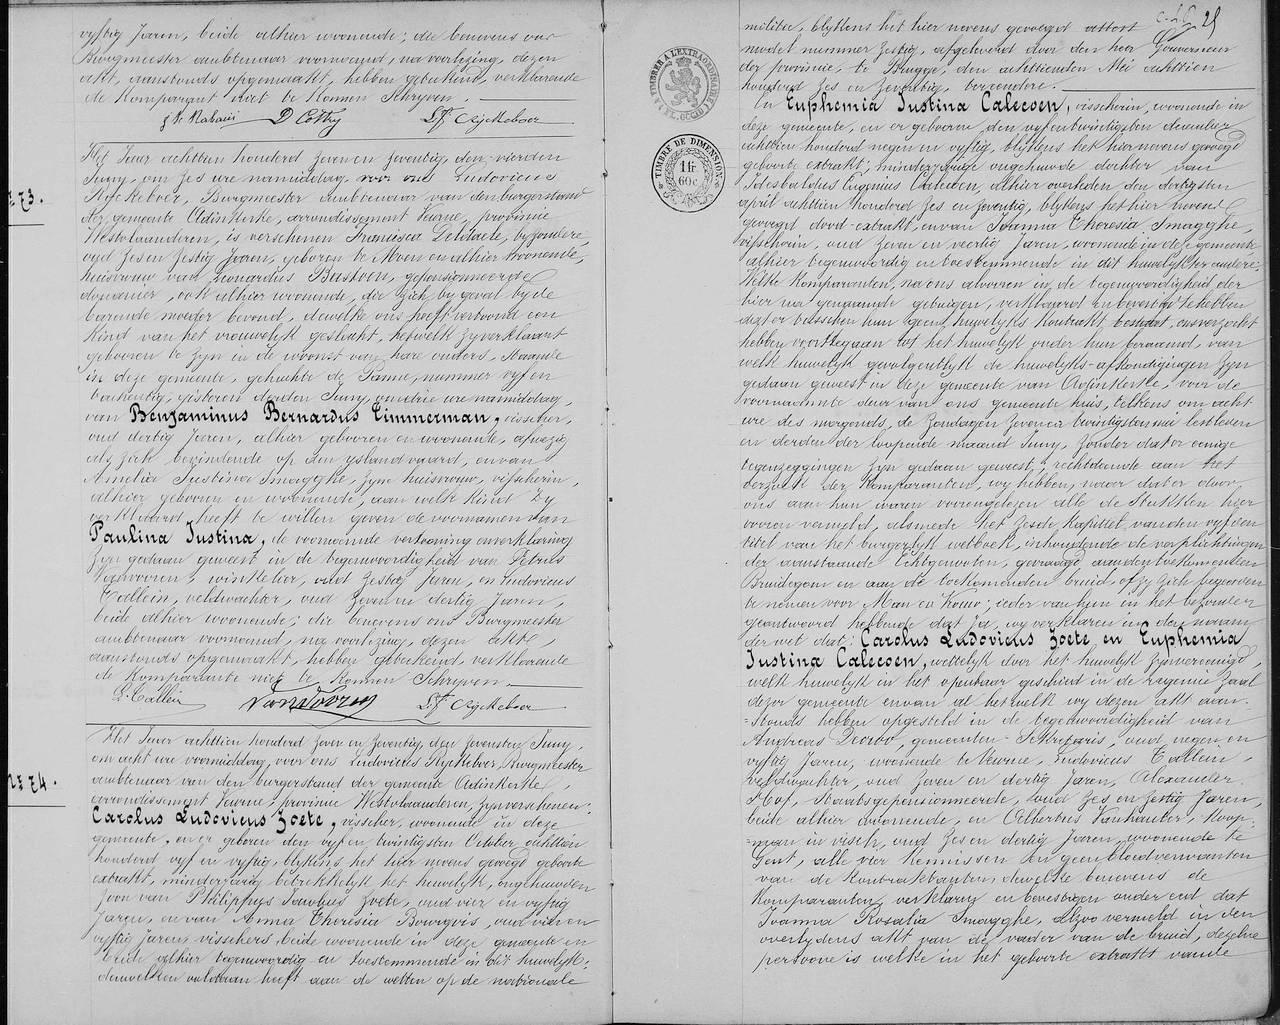 vyftig Jaren, beide alhier woonende; die benevens ons
Burgmeester ambtenaar voornoemd, na voorlezing, dezen
akt, aanstonds opgemaakt, hebben geteekend, verklarende
de Komparant niet te Konnen Schryven.
D'Cethy Ryckeboer
N° 73.
Het Jaar achttien honderd zeven en zeventig, den vierden
Juny, om zes ure namiddag, voor ons Ludovicus
Ryckeboer, Burgmeester Ambtenaar van den burgerstand
der gemeente Adinkerke, arrondissement Veurne, provincie
Westvlaanderen, is verschenen Francisca Delitaele, byzondere,
oud zes en zestig Jaren, geboren te Moere en alhier woonende,
huisvrouw van Leonardus Bastoen, gepensionneerde
douanier, ook alhier woonende, die zich by geval by de
barende moeder bevond, dewelke ons heeft vertoond een
Kind van het vrouwelyk geslacht, hetwelk zy verklaart
geboren te zyn in de woonst van hare ouders, staande
in deze gemeente, gehuchte de Panne, nummer vyf en
tachentig, gisteren derden Juny, om drie ure namiddag,
van Benjaminus Bernardus Timmerman, visscher,
oud dertig Jaren, alhier gebooren en woonende, afwezig
als zich bevindende op den yslandvaard, en van
Amelia Justina Smagghe, zyne huisvrouw, visscherin,
alhier geboren en woonende, aan welk Kind zy
verklaard heeft te willen geven de voornamen van
Paulina Justina, de voornoemde vertooning en verklaring
zyn gedaan geweest in de tegenwoordigheid van Petrus
Vanvooren, winkelier, oud zestig Jaren, en Ludovicus
Callein, veldwachter, oud zeven en dertig Jaren,
beide alhier woonende; die benevens ons Burgmeester
ambtenaar voornoemd, na voorlezing, dezen akte,
aanstonds opgemaakt, hebben geteekend, verklarende
de Komparante niet te Konnen Schryven.
L. Callein Vanvooren Ryckeboer
N° 74.
Het Jaar achttien honderd zeven en zeventig, den zevensten Juny,
om acht ure voormiddag, voor ons Ludovicus Ryckeboer, Burgmeester
ambtenaar van den burgerstand der gemeente Adinkerke,
arrondissement Veurne, provincie Westvlaanderen, zyn verschenen:
Carolus Ludovicus Zoete, visscher, woonende in deze
gemeente, en er geboren den vyf en twintigsten October achttien
honderd vyf en vyftig, blykens het hier nevens gevoegd geboorte
extrakt, minderjarig betrekkelyk het huwelyk, ongehuwden
zoon van Philippus Jacobus Zoete, oud vier en vyftig
Jaren, en van Anna Theresia Bourgois, oud vier en
vyftig Jaren, visschers, beide woonende in deze gemeente en
beide alhier tegenwoordig en toestemmende in dit huwelyk;
denwelken voldaan heeft aan de wetten op de nationale
25
militie, blykens het hier nevens gevoegd attest
model nummer zestig, afgeleverd door den heer Gouverneur
der provincie, te Brugge, den achttienden Mei achttien
honderd zes en zeventig, ter eendere.
En Euphemia Justina Calecoen, visscherin, woonende in
deze gemeente, en er geboren, den vyf en twintigsten december
achttien honderd negen en vyftig, blykens het hier nevens gevoegd
geboorte extrakt; minderjarige ongehuwde dochter van
Idesbaldus Eugenius Calecoen, alhier overleden den dertigsten
april achttien honderd zes en zeventig, blykens het hier nevens
gevoegd dood-extrakt, en van Joanna Theresia Smagghe,
visscherin, oud zeven en veertig Jaren, woonende in deze gemeente
alhier tegenwoordig en toestemmende in dit huwelyk ter andere;
Welke Komparanten, na ons alvoren in de tegenwoordigheid der
hier na genaamde getuigen, verklaard en bevestigd te hebben
dat er tusschen hun geen huwelyks Kontrakt bestaat, ons verzocht
hebben voortegaan tot het huwelyk onder hun beraamd, van
welk huwelyk gevolgentlyk de huwelyks-afkondigingen zyn
gedaan geweest in deze gemeente van Adinkerke, voor de
voornaamste deur van ons gemeente huis, telkens om acht
ure des morgends, de zondagen zeven en twintigsten mei lestleden
en derden der loopende maand Juny, zonder dat er eenige
tegenzeggingen zyn gedaan geweest; rechtdoende aan het
verzoek der Komparanten, wy hebben, naer dat er door
ons aan hun waren voorengelezen alle de Stukken hier
voren vermeld, alsmede het zesde Kapittel van den vyfden
titel van het burgerlyk wetboek, inhoudende de verplichtingen
der aanstaande Echtgenooten, gevraagd aan den toekomenden
Bruidegom en aan de toekomenden bruid, of zy zich begeerden
te nemen voor Man en Vrouw; ieder van hun in het byzonder
geantwoord hebbende dat Ja, wy verklaren in den naam
der wet dat: Carolus Ludovicus Zoete en Euphemia
Justina Calecoen, wettelyk door het huwelyk zyn vereenigd,
welk huwelyk in het openbaar geschied in de zegenne zaal
dezer gemeente en van al hetwelk wy dezen akt aan-
stonds hebben opgesteld in de tegenwoordigheid van
Andreas Decroo, gemeente-Sekretaris, oud negen en
vyftig Jaren, woonende te Veurne, Ludovicus Callein,
veldwachter, oud zeven en dertig Jaren, Alexander
Hof, staatsgepensionneerde, oud zes en zestig Jaren,
beide alhier woonende, en Albertus Vanhauter, Koop-
man in visch, oud zes en dertig Jaren, woonende te
Gent, alle vier Kennissen en geen bloedverwanten
van de Kontraktanten, dewelke benevens de
Komparanten verklaren en bevestigen onder eed dat
Joanna Rosalia Smagghe, alzoo vermeld in den
overlydens akt van de vader van de bruid, dezelve
persoone is welke in het geboorte extrakt van de
TIMBRE DE DIMENSION
1 fr.
60 c.
TIMBRE A L'EXTRAORDINAIRE